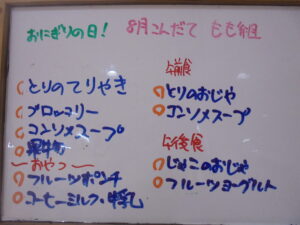 おにぎりの日!
8月こんだて もも組
とりのてりやき
ブロッコリー
コンソメスープ
果物
〜おやつ〜
フルーツポンチ
コーヒーミルク・牛乳
午前食
とりのおじや
コンソメスープ
午後食
じゃこのおじや
フルーツヨーグルト